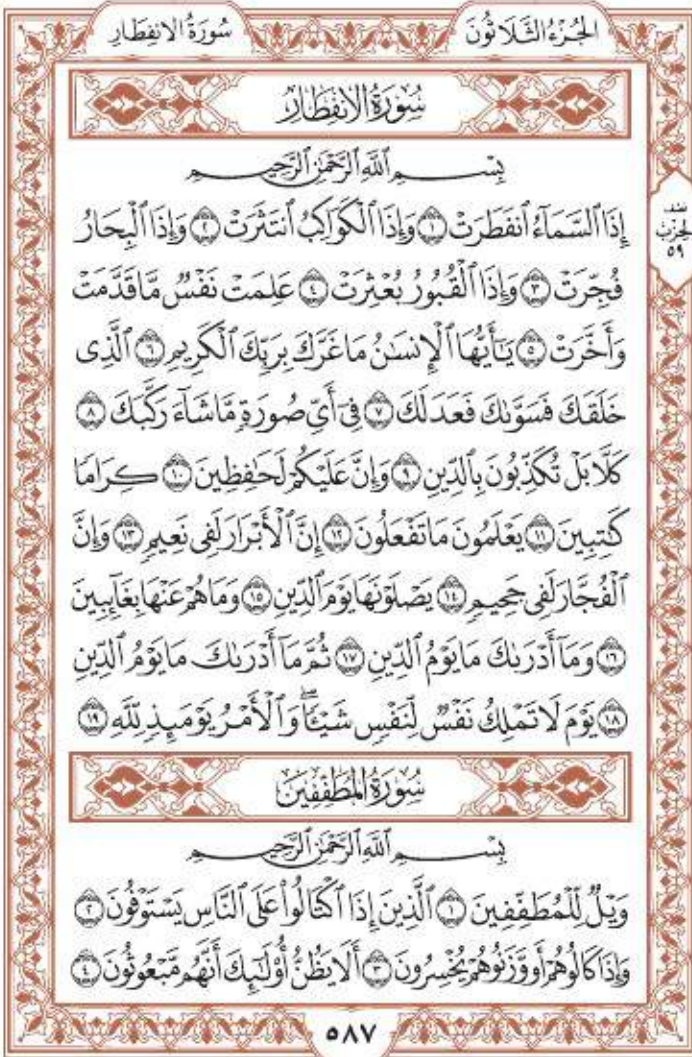 سُورَةُ الِانفِطَارِ
الجُزْءُ الثَّلَاثُونَ
سُورَةُ الِانفِطَارِ
بِسْمِ ٱللَّهِ ٱلرَّحْمَٰنِ ٱلرَّحِيمِ
إِذَا ٱلسَّمَآءُ ٱنفَطَرَتْ ١ وَإِذَا ٱلْكَوَاكِبُ ٱنتَثَرَتْ ٢ وَإِذَا ٱلْبِحَارُ
نصف الحزب ٥٩
فُجِّرَتْ ٣ وَإِذَا ٱلْقُبُورُ بُعْثِرَتْ ٤ عَلِمَتْ نَفْسٌ مَّا قَدَّمَتْ
وَأَخَّرَتْ ٥ يَٰٓأَيُّهَا ٱلْإِنسَٰنُ مَا غَرَّكَ بِرَبِّكَ ٱلْكَرِيمِ ٦ ٱلَّذِى
خَلَقَكَ فَسَوَّىٰكَ فَعَدَلَكَ ٧ فِىٓ أَىِّ صُورَةٍ مَّا شَآءَ رَكَّبَكَ ٨
كَلَّا بَلْ تُكَذِّبُونَ بِٱلدِّينِ ٩ وَإِنَّ عَلَيْكُمْ لَحَٰفِظِينَ ١٠ كِرَامًا
كَٰتِبِينَ ١١ يَعْلَمُونَ مَا تَفْعَلُونَ ١٢ إِنَّ ٱلْأَبْرَارَ لَفِى نَعِيمٍ ١٣ وَإِنَّ
ٱلْفُجَّارَ لَفِى جَحِيمٍ ١٤ يَصْلَوْنَهَا يَوْمَ ٱلدِّينِ ١٥ وَمَا هُمْ عَنْهَا بِغَآئِبِينَ
١٦ وَمَآ أَدْرَىٰكَ مَا يَوْمُ ٱلدِّينِ ١٧ ثُمَّ مَآ أَدْرَىٰكَ مَا يَوْمُ ٱلدِّينِ
١٨ يَوْمَ لَا تَمْلِكُ نَفْسٌ لِّنَفْسٍ شَيْـًٔا ۖ وَٱلْأَمْرُ يَوْمَئِذٍ لِّلَّهِ ١٩
سُورَةُ المُطَفِّفِينَ
بِسْمِ ٱللَّهِ ٱلرَّحْمَٰنِ ٱلرَّحِيمِ
وَيْلٌ لِّلْمُطَفِّفِينَ ١ ٱلَّذِينَ إِذَا ٱكْتَالُوا۟ عَلَى ٱلنَّاسِ يَسْتَوْفُونَ ٢
وَإِذَا كَالُوهُمْ أَو وَّزَنُوهُمْ يُخْسِرُونَ ٣ أَلَا يَظُنُّ أُو۟لَٰٓئِكَ أَنَّهُم مَّبْعُوثُونَ ٤
٥٨٧